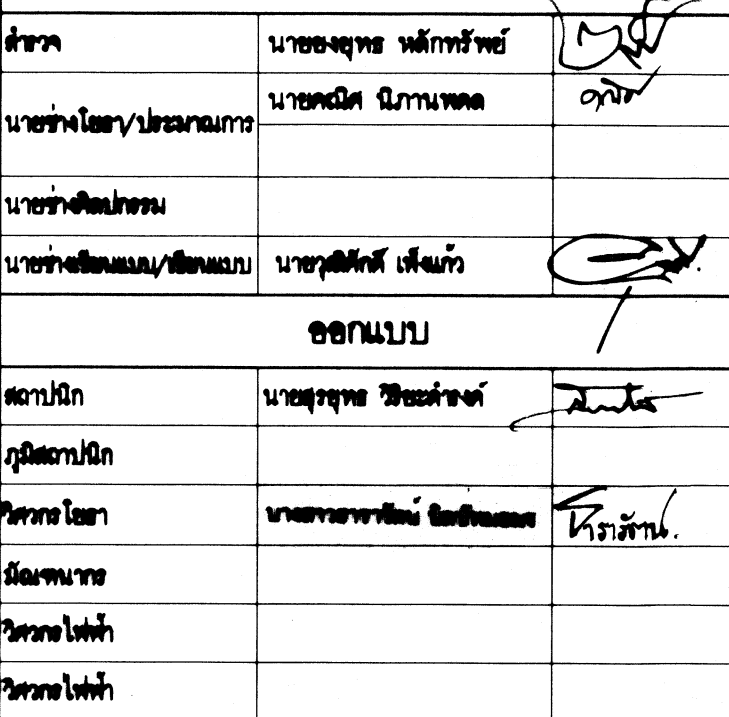 สำรวจ นายยงยุทธ หลักทรัพย์
นายคณิศ นิภานพดล
นายช่างโยธา/ประมาณการ
นายช่างศิลปกรรม
นายช่างเขียนแบบ/เขียนแบบ นายวุฒิศักดิ์ เพ็งแก้ว
ออกแบบ
สถาปนิก นายสุรยุทธ วิริยะดำรงค์
ภูมิสถาปนิก
วิศวกรโยธา นางสาวธารารัตน์
ธารารัตน์.
มัณฑนากร
วิศวกรไฟฟ้า
วิศวกรไฟฟ้า